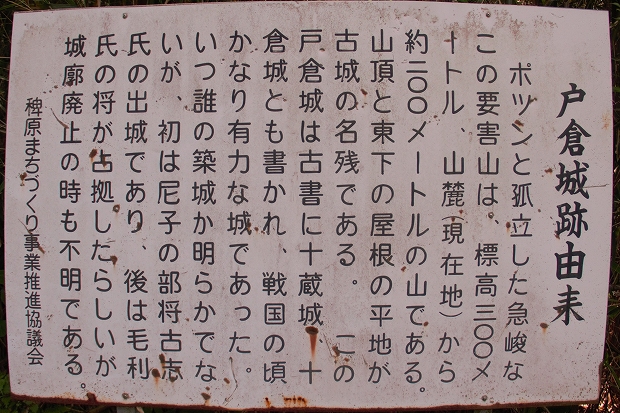 戸倉城跡由来
ポツンと孤立した急峻な
この要害山は、標高三〇〇メ
ートル、山麓(現在地)から
約二〇〇メートルの山である。
山頂と東下の屋根の平地が
古城の名残である。 この
戸倉城は古書に十蔵城 十
倉城とも書かれ、戦国の頃
かなり有力な城であった。
いつ誰の築城か明らかでな
いが、初は尼子の部将古志
氏の出城であり、後は毛利
氏の将が占拠したらしいが
城廓廃止の時も不明である。
稗原まちづくり事業推進協議会